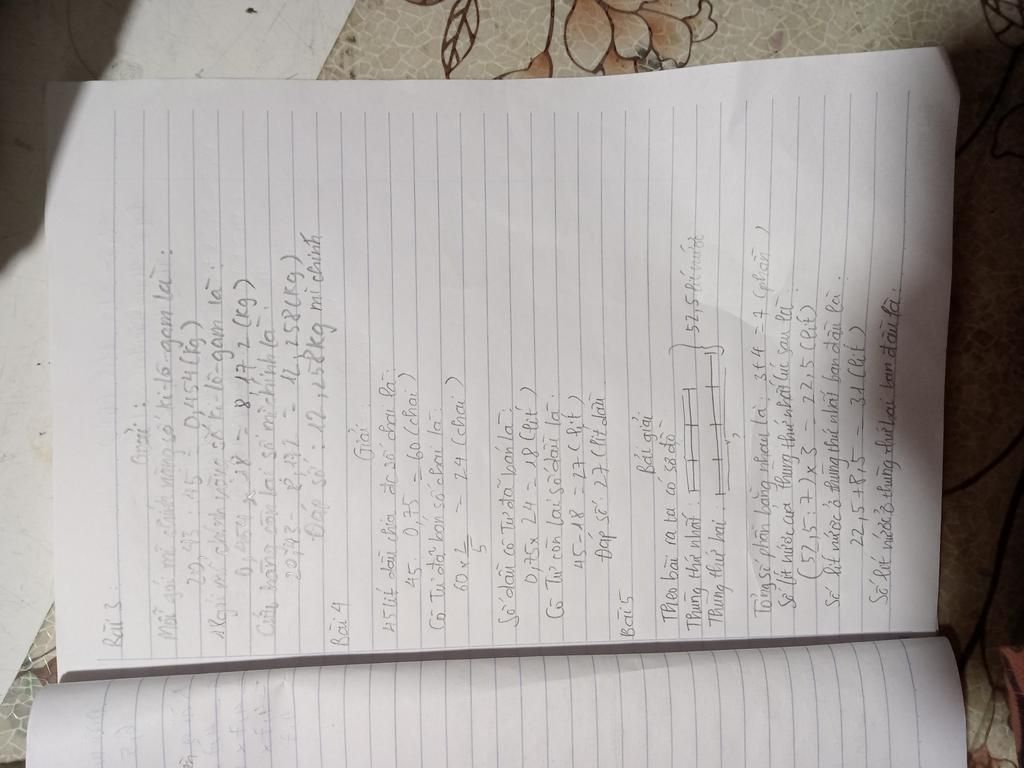 Bài 3
Giải:
Mỗi gói mì chính nặng số ki-lô-gam là:
20,43 : 45 = 0,454 (kg)
18 gói mì chính nặng số ki-lô-gam là:
0,454 x 18 = 8,172 (kg)
Cửa hàng còn lại số mì chính là:
20,43 - 8,172 = 12,258 (kg)
Đáp số: 12,258 kg mì chính
Bài 4
Giải:
45 lít dầu chia đc số chai là:
45 : 0,75 = 60 (chai)
Cô Tư đã bán số chai là:
60 x 2/5 = 24 (chai)
Số dầu cô Tư đã bán là:
0,75 x 24 = 18 (lít)
Cô Tư còn lại số dầu là:
45 - 18 = 27 (lít)
Đáp số: 27 lít dầu
Bài 5
Bài giải
Theo bài ra ta có sơ đồ
Thùng thứ nhất:
52,5 lít nước
Thùng thứ hai:
Tổng số phần bằng nhau là: 3+4 = 7 (phần)
Số lít nước của thùng thứ nhất lúc sau là:
(52,5 : 7) x 3 = 22,5 (lít)
Số lít nước ở thùng thứ nhất ban đầu là:
22,5 + 8,5 = 31 (lít)
Số lít nước ở thùng thứ hai ban đầu là: